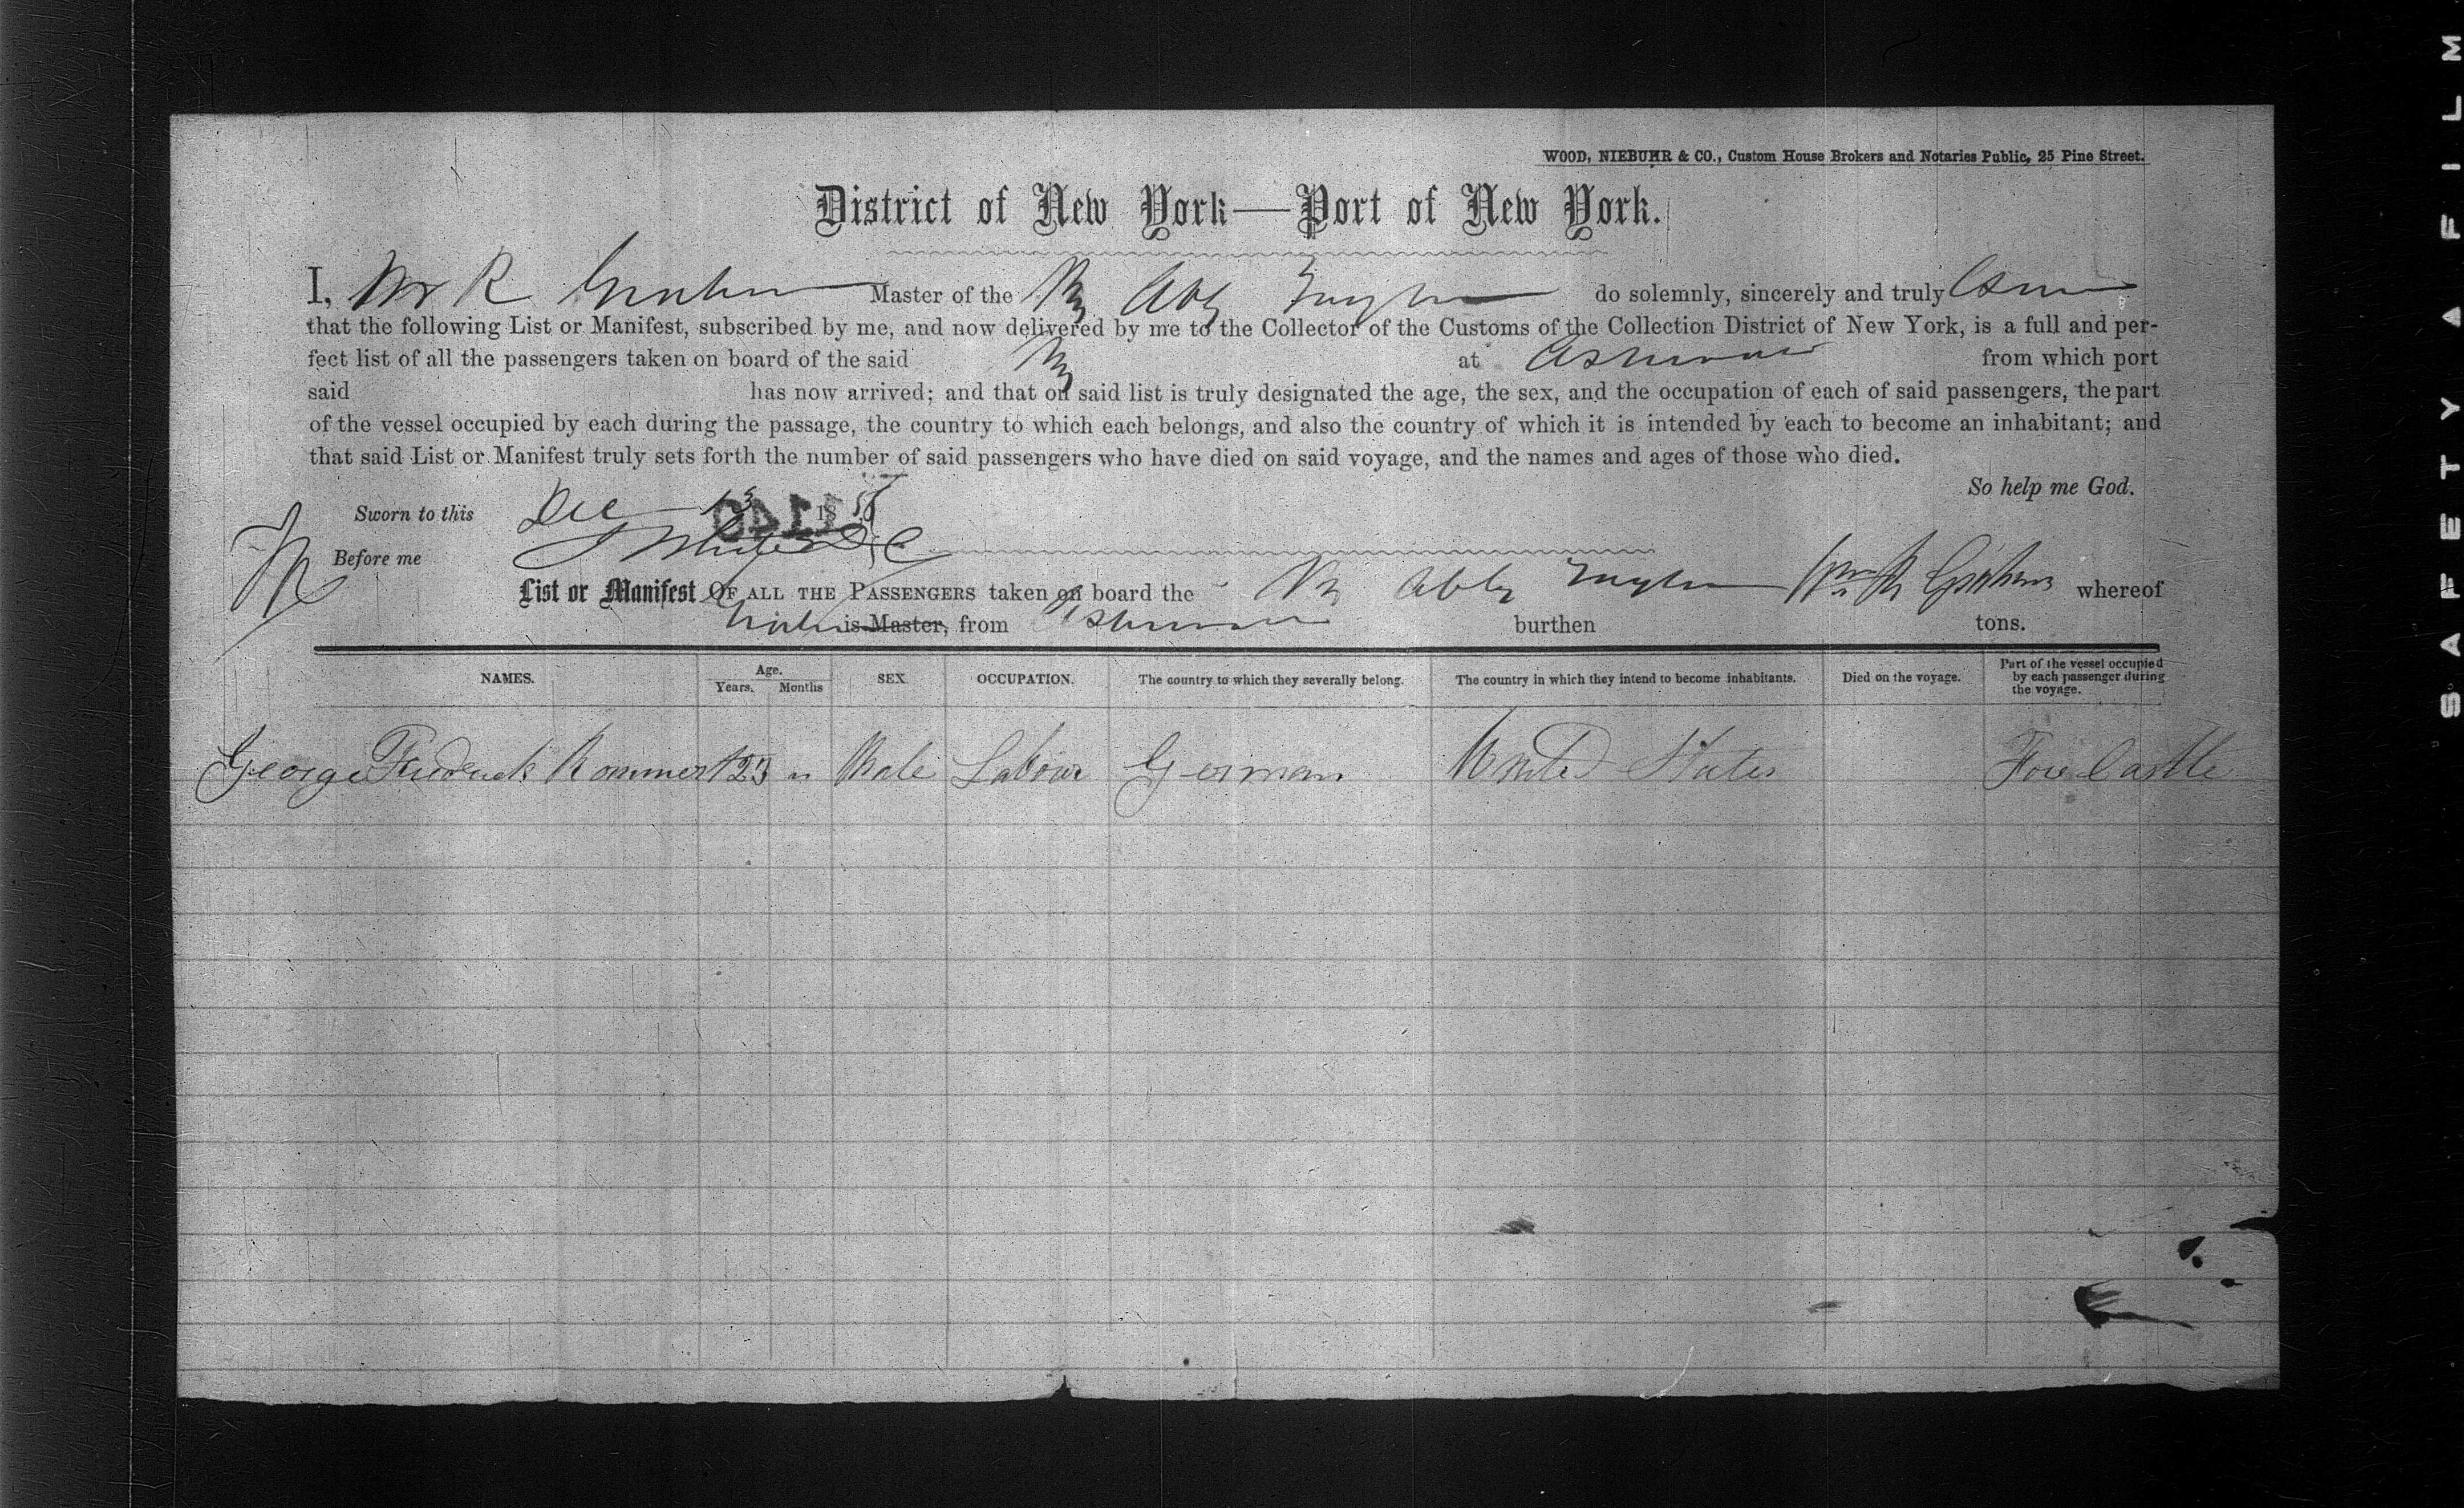 WOOD, NIEBUHR & CO., Custom House Brokers and Notaries Public, 25 Pine Street.
District of New York—Port of New York.
I, Wm R Master of the Abby do solemnly, sincerely and truly
that the following List or Manifest, subscribed by me, and now delivered by me to the Collector of the Customs of the Collection District of New York, is a full and per-
fect list of all the passengers taken on board of the said at from which port
said has now arrived; and that on said list is truly designated the age, the sex, and the occupation of each of said passengers, the part
of the vessel occupied by each during the passage, the country to which each belongs, and also the country of which it is intended by each to become an inhabitant; and
that said List or Manifest truly sets forth the number of said passengers who have died on said voyage, and the names and ages of those who died.
So help me God.
Sworn to this Dec 13 18
Before me
List or Manifest OF ALL THE PASSENGERS taken on board the Abby Wm R whereof
is Master, from burthen tons.
NAMES. Age. Years. Months SEX. OCCUPATION. The country to which they severally belong. The country in which they intend to become inhabitants. Died on the voyage. Part of the vessel occupied by each passenger during the voyage.
George Frederick Rommert 23 " Male Labour German United States Fore Castle
SAFETY A FILM